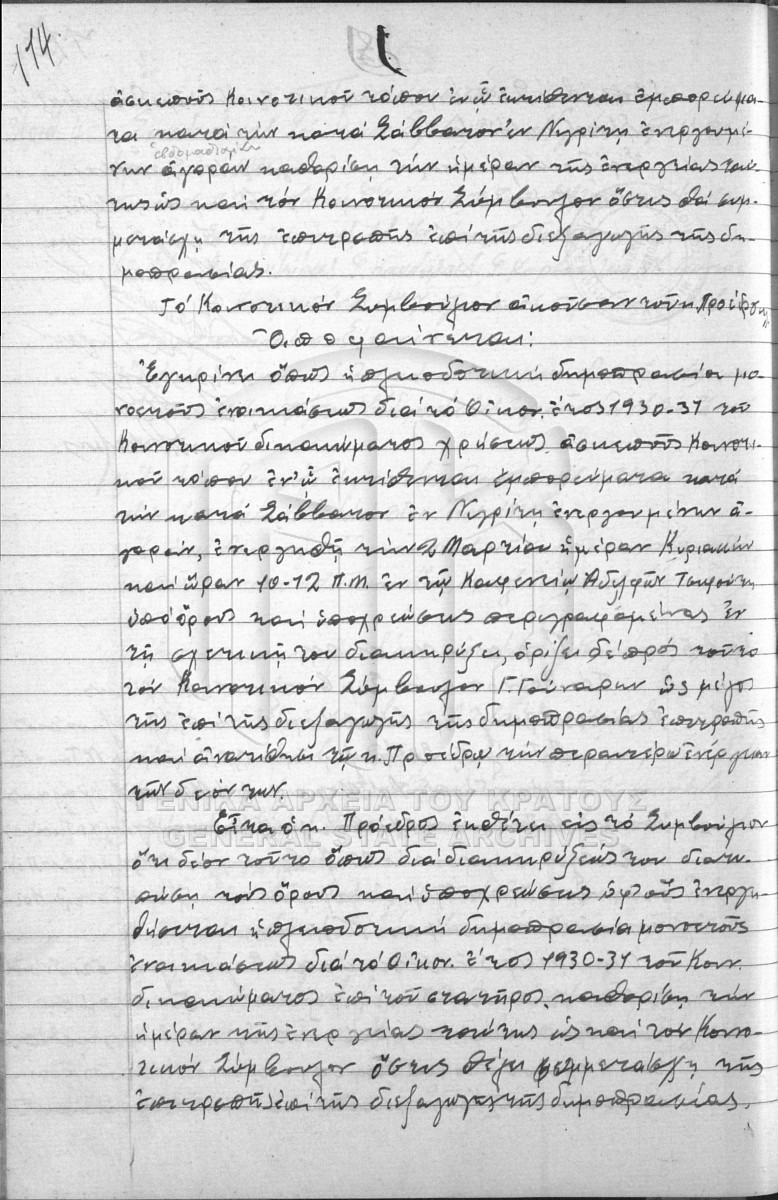 114
ἀσκεποῦς Κοινοτικοῦ τόπου ἐν ᾧ ἐκτίθενται ἐμπορεύμα-
τα κατὰ τὴν κατὰ Σάββατον ἐν Νιγρίτῃ ἐνεργουμέ-
ἑβδομαδιαίαν
νην ἀγορὰν καθορίσῃ τὴν ἡμέραν τῆς ἐνεργείας ταύ-
της ὡς καὶ τὸν Κοινοτικὸν Σύμβουλον ὅστις θὰ συμ-
μετάσχῃ τῆς ἐπιτροπῆς ἐπὶ τῆς διεξαγωγῆς τῆς δη-
μοπρασίας.
Τὸ Κοινοτικὸν Συμβούλιον ἀκοῦσαν τοῦ κ. Προέδρου
Ἀποφαίνεται:
Ἐγκρίνει ὅπως ἡ πλειοδοτικὴ δημοπρασία μο-
νοετοῦς ἐνοικιάσεως διὰ τὸ Οἰκον. ἔτος 1930-31 τοῦ
Κοινοτικοῦ δικαιώματος χρήσεως ἀσκεποῦς Κοινοτι-
κοῦ τόπου ἐν ᾧ ἐκτίθενται ἐμπορεύματα κατὰ
τὴν κατὰ Σάββατον ἐν Νιγρίτῃ ἐνεργουμένην ἀ-
γοράν, ἐνεργηθῇ τὴν 2 Μαρτίου ἡμέραν Κυριακὴν
καὶ ὥραν 10-12 π.μ. ἐν τῷ Καφενείῳ Ἀδελφῶν
ὑπὸ ὅρους καὶ ὑποχρεώσεις περιγραφομένας ἐν
τῇ σχετικῇ του διακηρύξει, ὁρίζει δὲ πρὸς τοῦτο
τὸν Κοινοτικὸν Σύμβουλον Γ. Γούναρην ὡς μέλος
τῆς ἐπὶ τῆς διεξαγωγῆς τῆς δημοπρασίας ἐπιτροπῆς
καὶ ἀνατίθησι τῷ κ. Προέδρῳ τὴν περαιτέρω ἐνέργειαν
τῶν δεόντων.
ΓΕΝΙΚΑ ΑΡΧΕΙΑ ΤΟΥ ΚΡΑΤΟΥΣ
Εἶτα ὁ κ. Πρόεδρος ἐκθέτει εἰς τὸ Συμβούλιον
GENERAL STATE ARCHIVES
ὅτι δέον τοῦτο ὅπως διὰ διακηρύξεώς του διατυ-
πώσῃ τοὺς ὅρους καὶ ὑποχρεώσεις ὑφ' οὓς ἐνεργη-
θήσεται ἡ πλειοδοτικὴ δημοπρασία μονοετοῦς
ἐνοικιάσεως διὰ τὸ Οἰκον. ἔτος 1930-31 τοῦ Κοιν.
δικαιώματος ἐπὶ τοῦ στατῆρος, καθορίσῃ τὴν
ἡμέραν τῆς ἐνεργείας ταύτης ὡς καὶ τὸν Κοινο-
τικὸν Σύμβουλον ὅστις θέλει συμμετάσχῃ τῆς
ἐπιτροπῆς ἐπὶ τῆς διεξαγωγῆς τῆς δημοπρασίας.